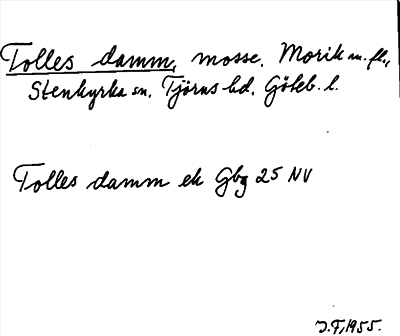 Tolles damm, mosse. Morik m. fl.,
Stenkyrka sn. Tjörns hd. Göteb. l.
Tolles damm ek Gbg 25 NV
J.F. 1955.